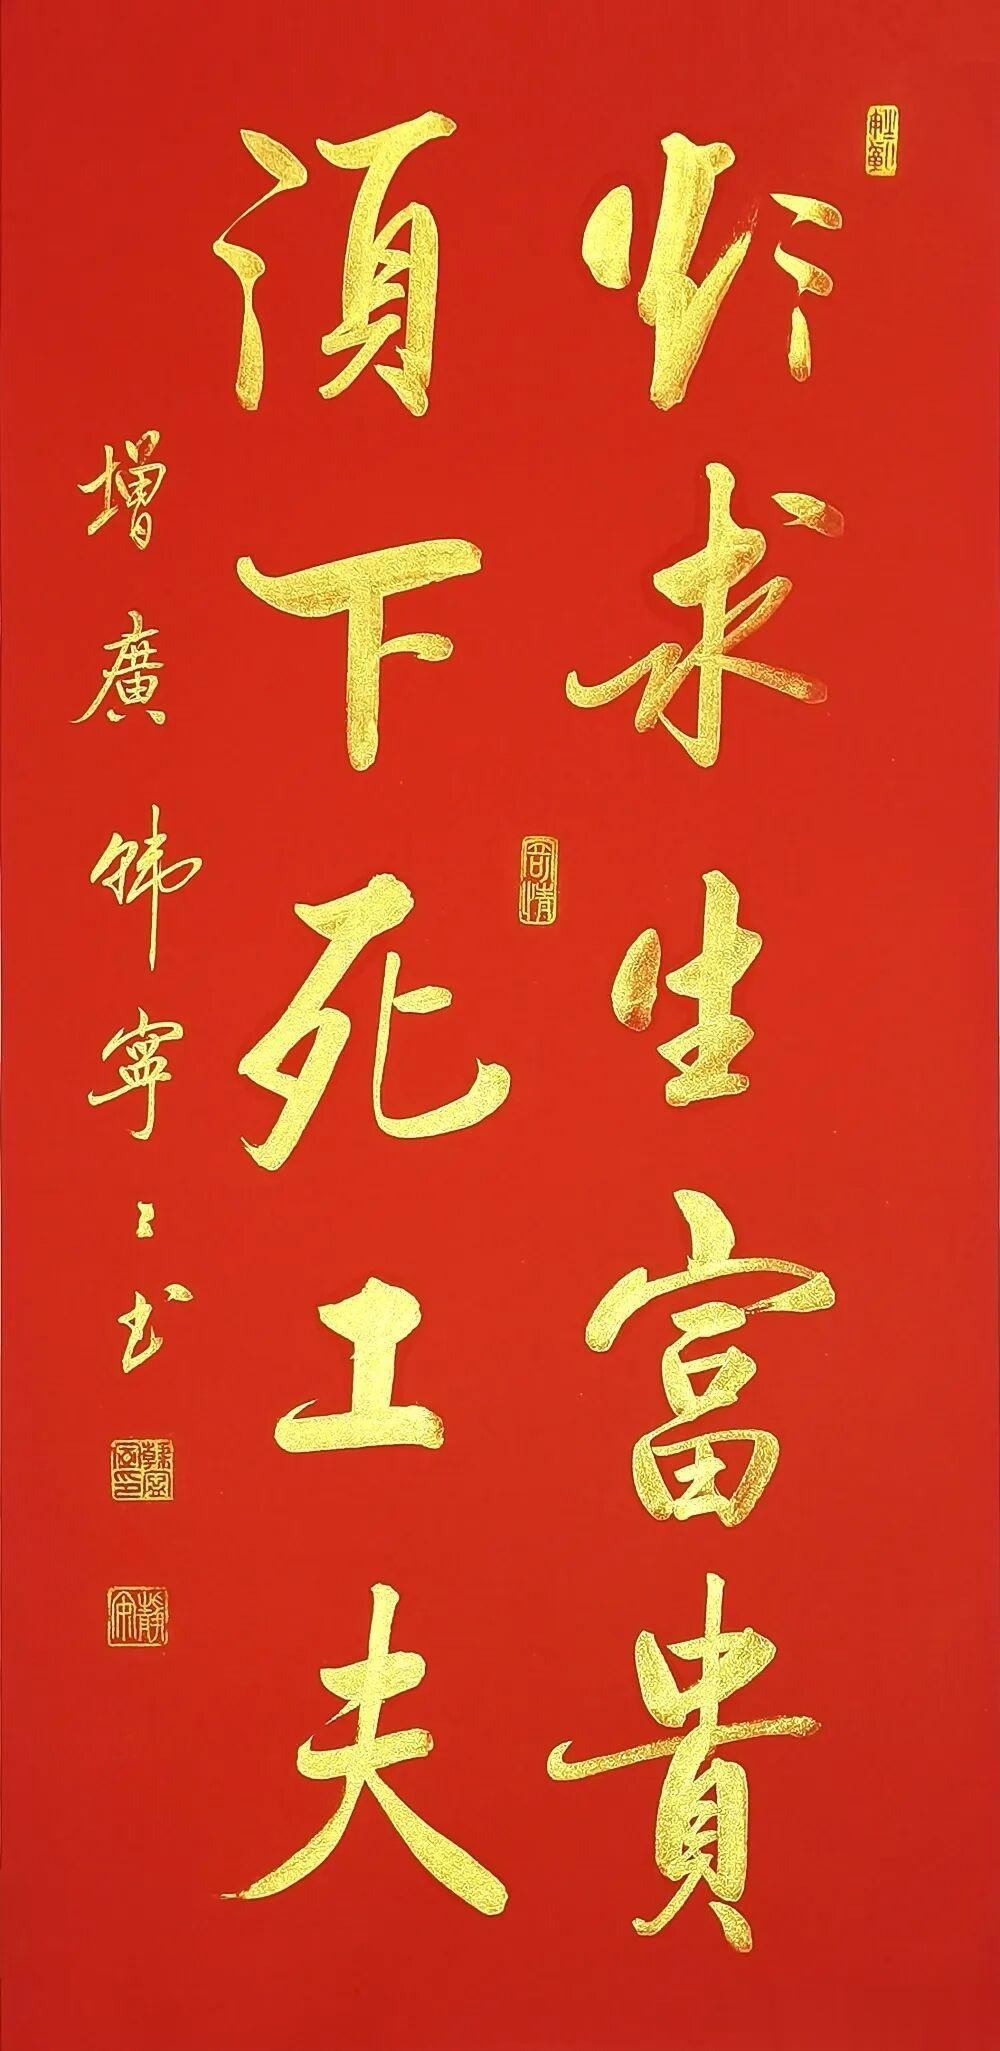 欲求生富貴
須下死工夫
增廣 韩寧之书